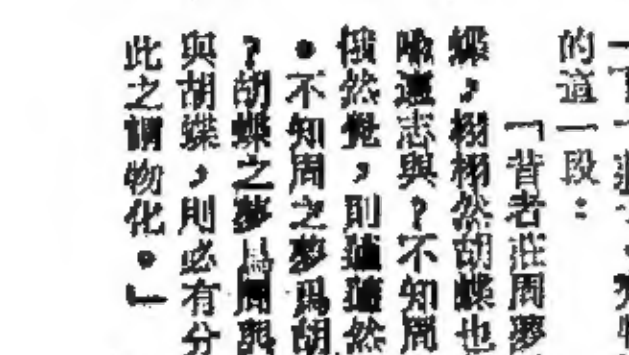 的這一段：
「昔者莊周夢
蝶，栩栩然胡蝶也
喻適志與？不知周
俄然覺，則蘧蘧然
。不知周之夢爲胡
？胡蝶之夢爲周與
與胡蝶，則必有分
此之謂物化。」